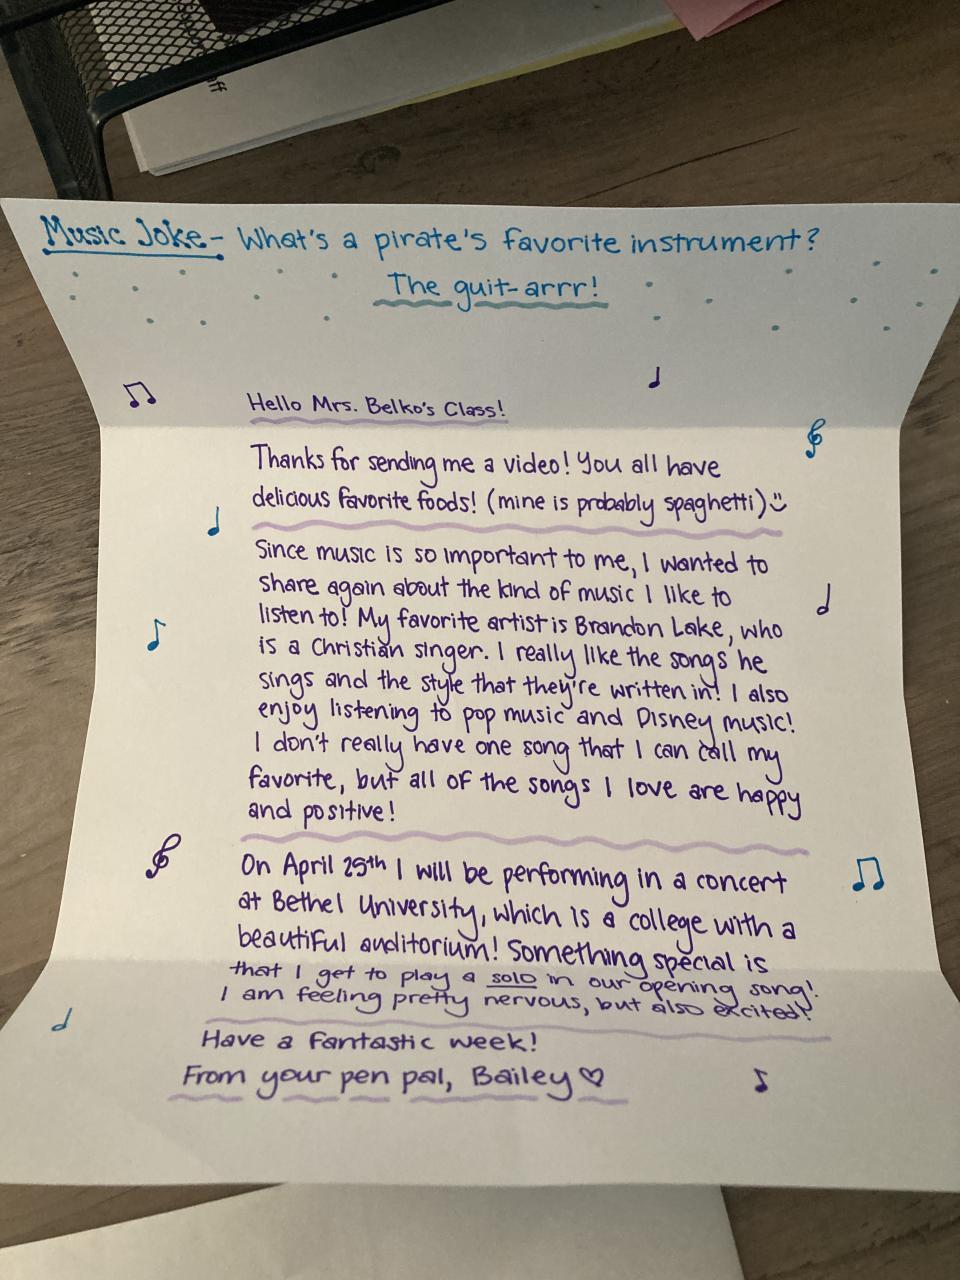 Music Joke - What's a pirate's favorite instrument?
The guit-arrr!
Hello Mrs. Belko's Class!
Thanks for sending me a video! You all have
delicious favorite foods! (mine is probably spaghetti)
Since music is so important to me, I wanted to
share again about the kind of music I like to
listen to! My favorite artist is Brandon Lake, who
is a Christian singer. I really like the songs he
sings and the style that they're written in! I also
enjoy listening to pop music and Disney music!
I don't really have one song that I can call my
favorite, but all of the songs I love are happy
and positive!
On April 25th I will be performing in a concert
at Bethel University, which is a college with a
beautiful auditorium! Something special is
that I get to play a solo in our opening song!
I am feeling pretty nervous, but also excited!
Have a fantastic week!
From your pen pal, Bailey ♡